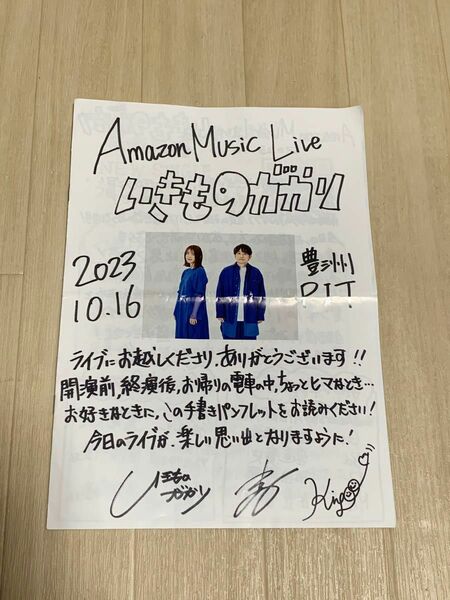 Amazon Music Live
いきものガガリ
2023
10.16
豊洲
PIT
ライブにお越しくださり、ありがとうございます!!
開演前、終演後、お帰りの電車の中、ちょっとヒマなとき…
お好きなときに、この手書きパンフレットをお読みください!
今日のライブが、楽しい思い出となりますように!